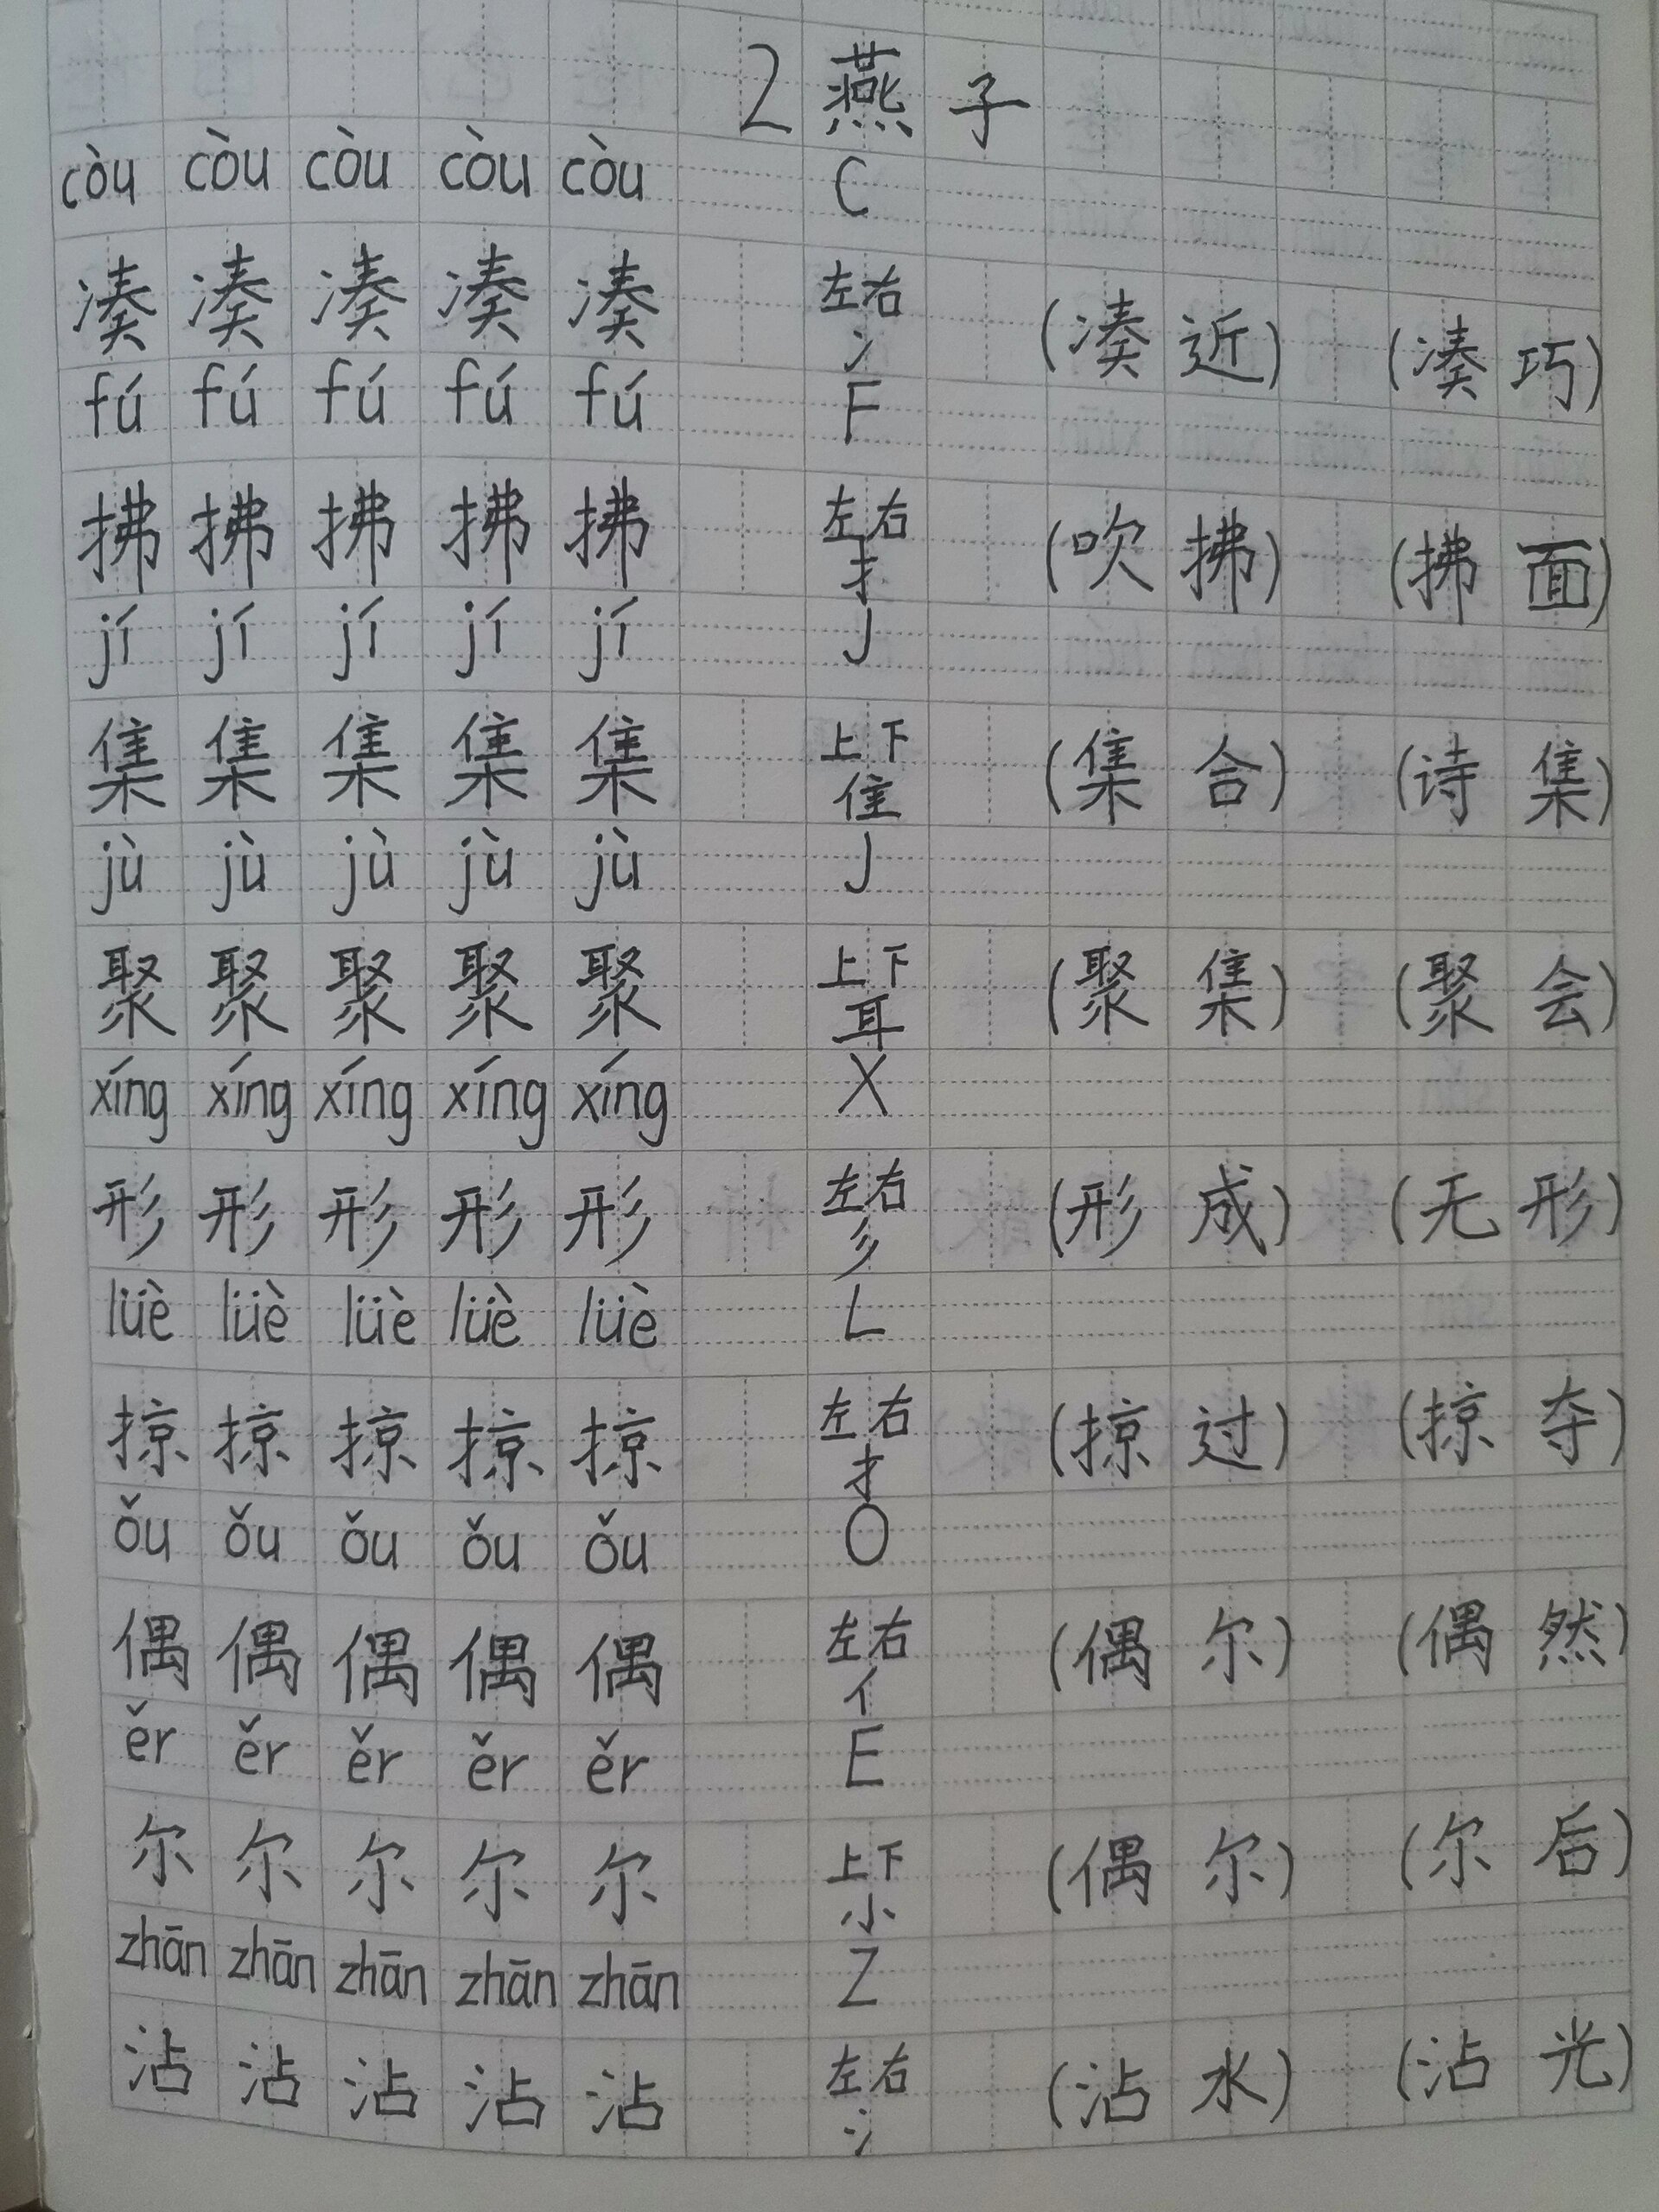 2 燕子
còu còu còu còu còu C
凑 凑 凑 凑 凑 左右 冫 (凑近) (凑巧)
fú fú fú fú fú F
拂 拂 拂 拂 拂 左右 扌 (吹拂) (拂面)
jí jí jí jí jí J
集 集 集 集 集 上下 隹 (集合) (诗集)
jù jù jù jù jù J
聚 聚 聚 聚 聚 上下 耳 (聚集) (聚会)
xíng xíng xíng xíng xíng X
形 形 形 形 形 左右 彡 (形成) (无形)
lüè lüè lüè lüè lüè L
掠 掠 掠 掠 掠 左右 扌 (掠过) (掠夺)
ǒu ǒu ǒu ǒu ǒu O
偶 偶 偶 偶 偶 左右 亻 (偶尔) (偶然)
ěr ěr ěr ěr ěr E
尔 尔 尔 尔 尔 上下 小 (偶尔) (尔后)
zhān zhān zhān zhān zhān Z
沾 沾 沾 沾 沾 左右 氵 (沾水) (沾光)